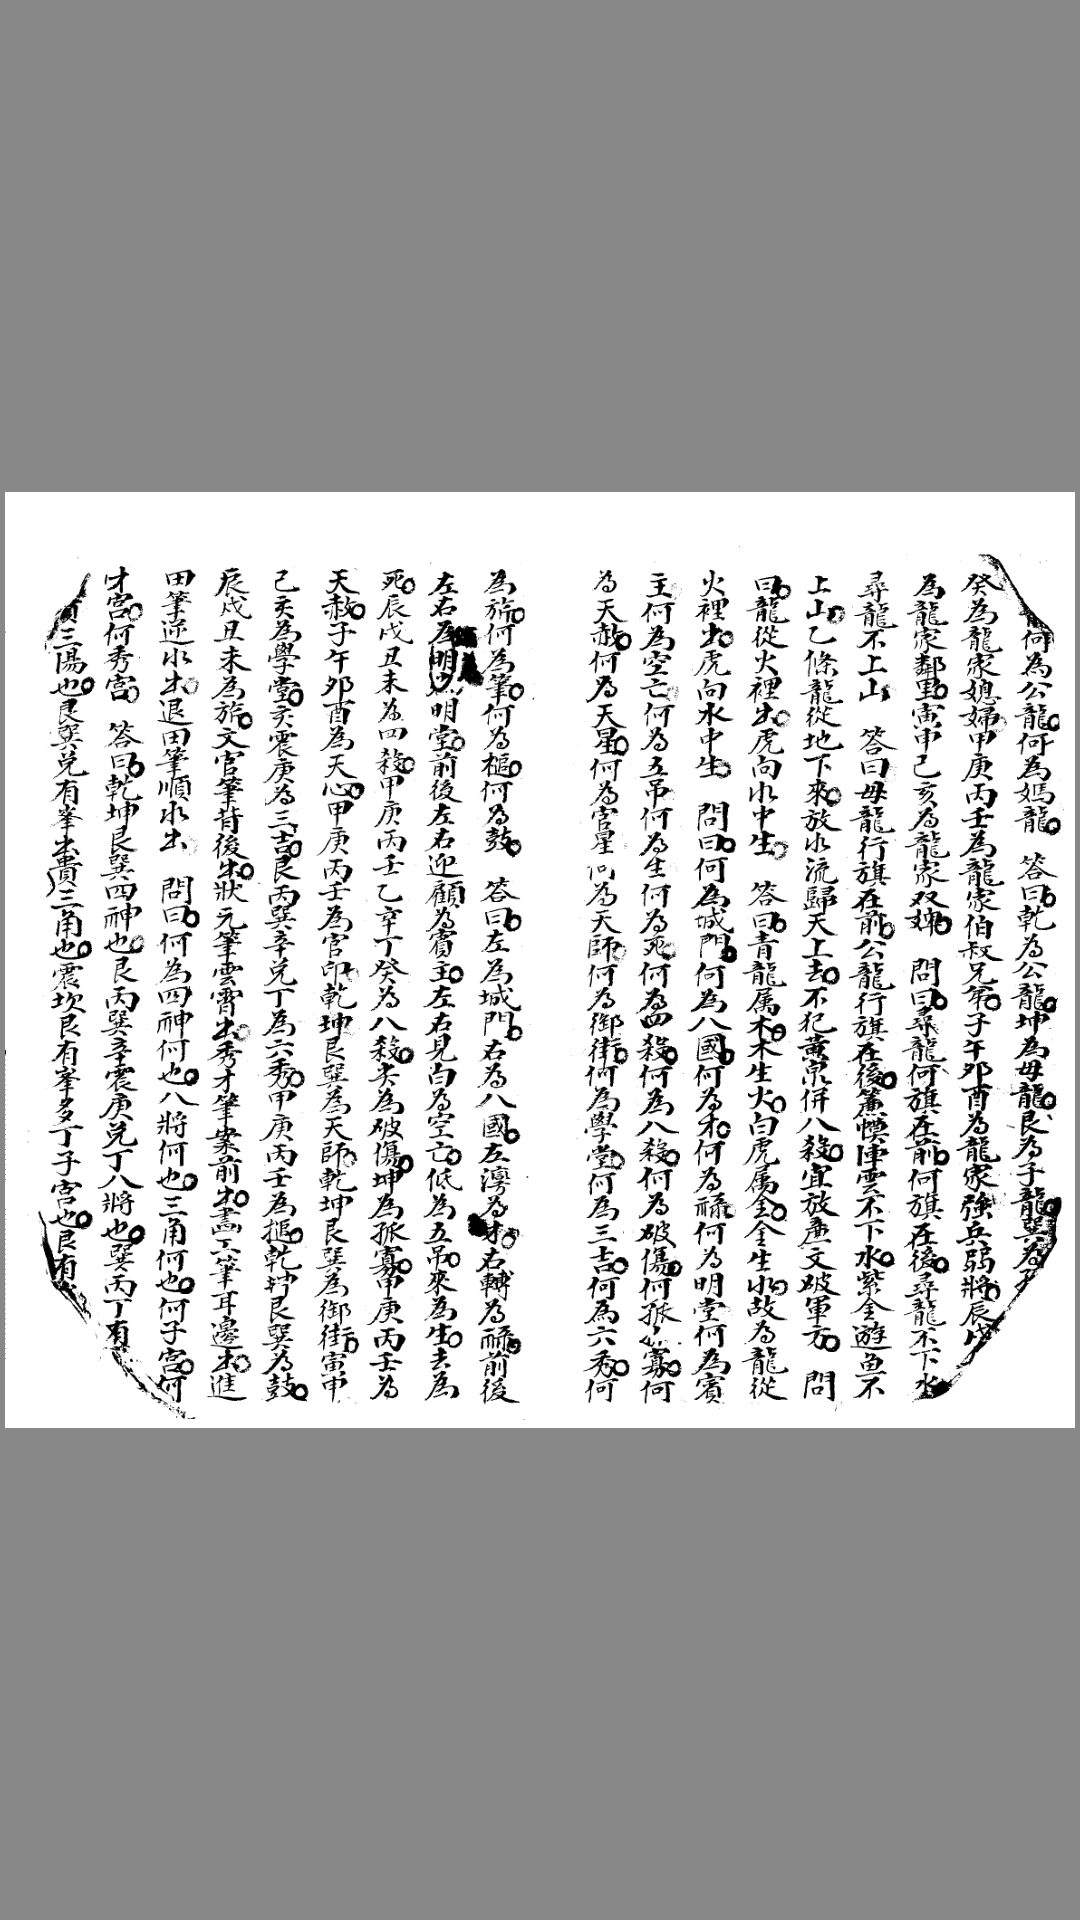 何為公龍何為媽龍 答曰乾為公龍坤為母龍艮為子龍巽為
癸為龍家媳婦甲庚丙壬為龍家伯叔兄弟子午卯酉為龍家強兵弱將辰戌
為龍家鄰里寅申己亥為龍家双 問曰尋龍何旗在前何旗在後尋龍不下水
尋龍不上山 答曰母龍行旗在前公龍行旗在後簾幙陣雲不下水紫金遊魚不
上山乙條龍從地下來放水流歸天上去不犯黃泉併八殺宜放廉文破軍方 問
曰龍從火裡出虎向水中生 答曰青龍属木木生火白虎属金金生水故為龍從
火裡出虎向水中生 問曰何為城門何為八國何為才何為祿何為明堂何為賓
主何為空亡何為五吊何為生何為死何為四殺何為八殺何為破傷何孤 寡何
為天赦何為天星何為官星何為天師何為御街何為學堂何為三吉何為六秀何
為旂何為筆何為搥何為鼓 答曰左為城門右為八國左 為才右轉為祿前後
左右為明 明堂前後左右迎顧為賓主左右見白為空亡低為五吊來為生去為
死辰戌丑未為四殺甲庚丙壬乙辛丁癸為八殺尖為破傷坤為孤寡甲庚丙壬為
天赦子午卯酉為天心甲庚丙壬為官印乾坤艮巽為天師乾坤艮巽為御街寅申
己亥為學堂亥震庚為三吉艮丙巽辛兌丁為六秀甲庚丙壬為搥乾坤艮巽為鼓
辰戌丑未為旂文官筆背後出狀元筆雲霄出秀才筆案前出畵工筆耳邊出進
田筆逆水出退田筆順水出 問曰何為四神何也八將何也三角何也何子宮何
才宮何秀宮 答曰乾坤艮巽四神也艮丙巽辛震庚兌丁八將也巽丙丁有
三陽也艮巽兌有峯出貴三角也震坎艮有峯多丁子宮也艮有